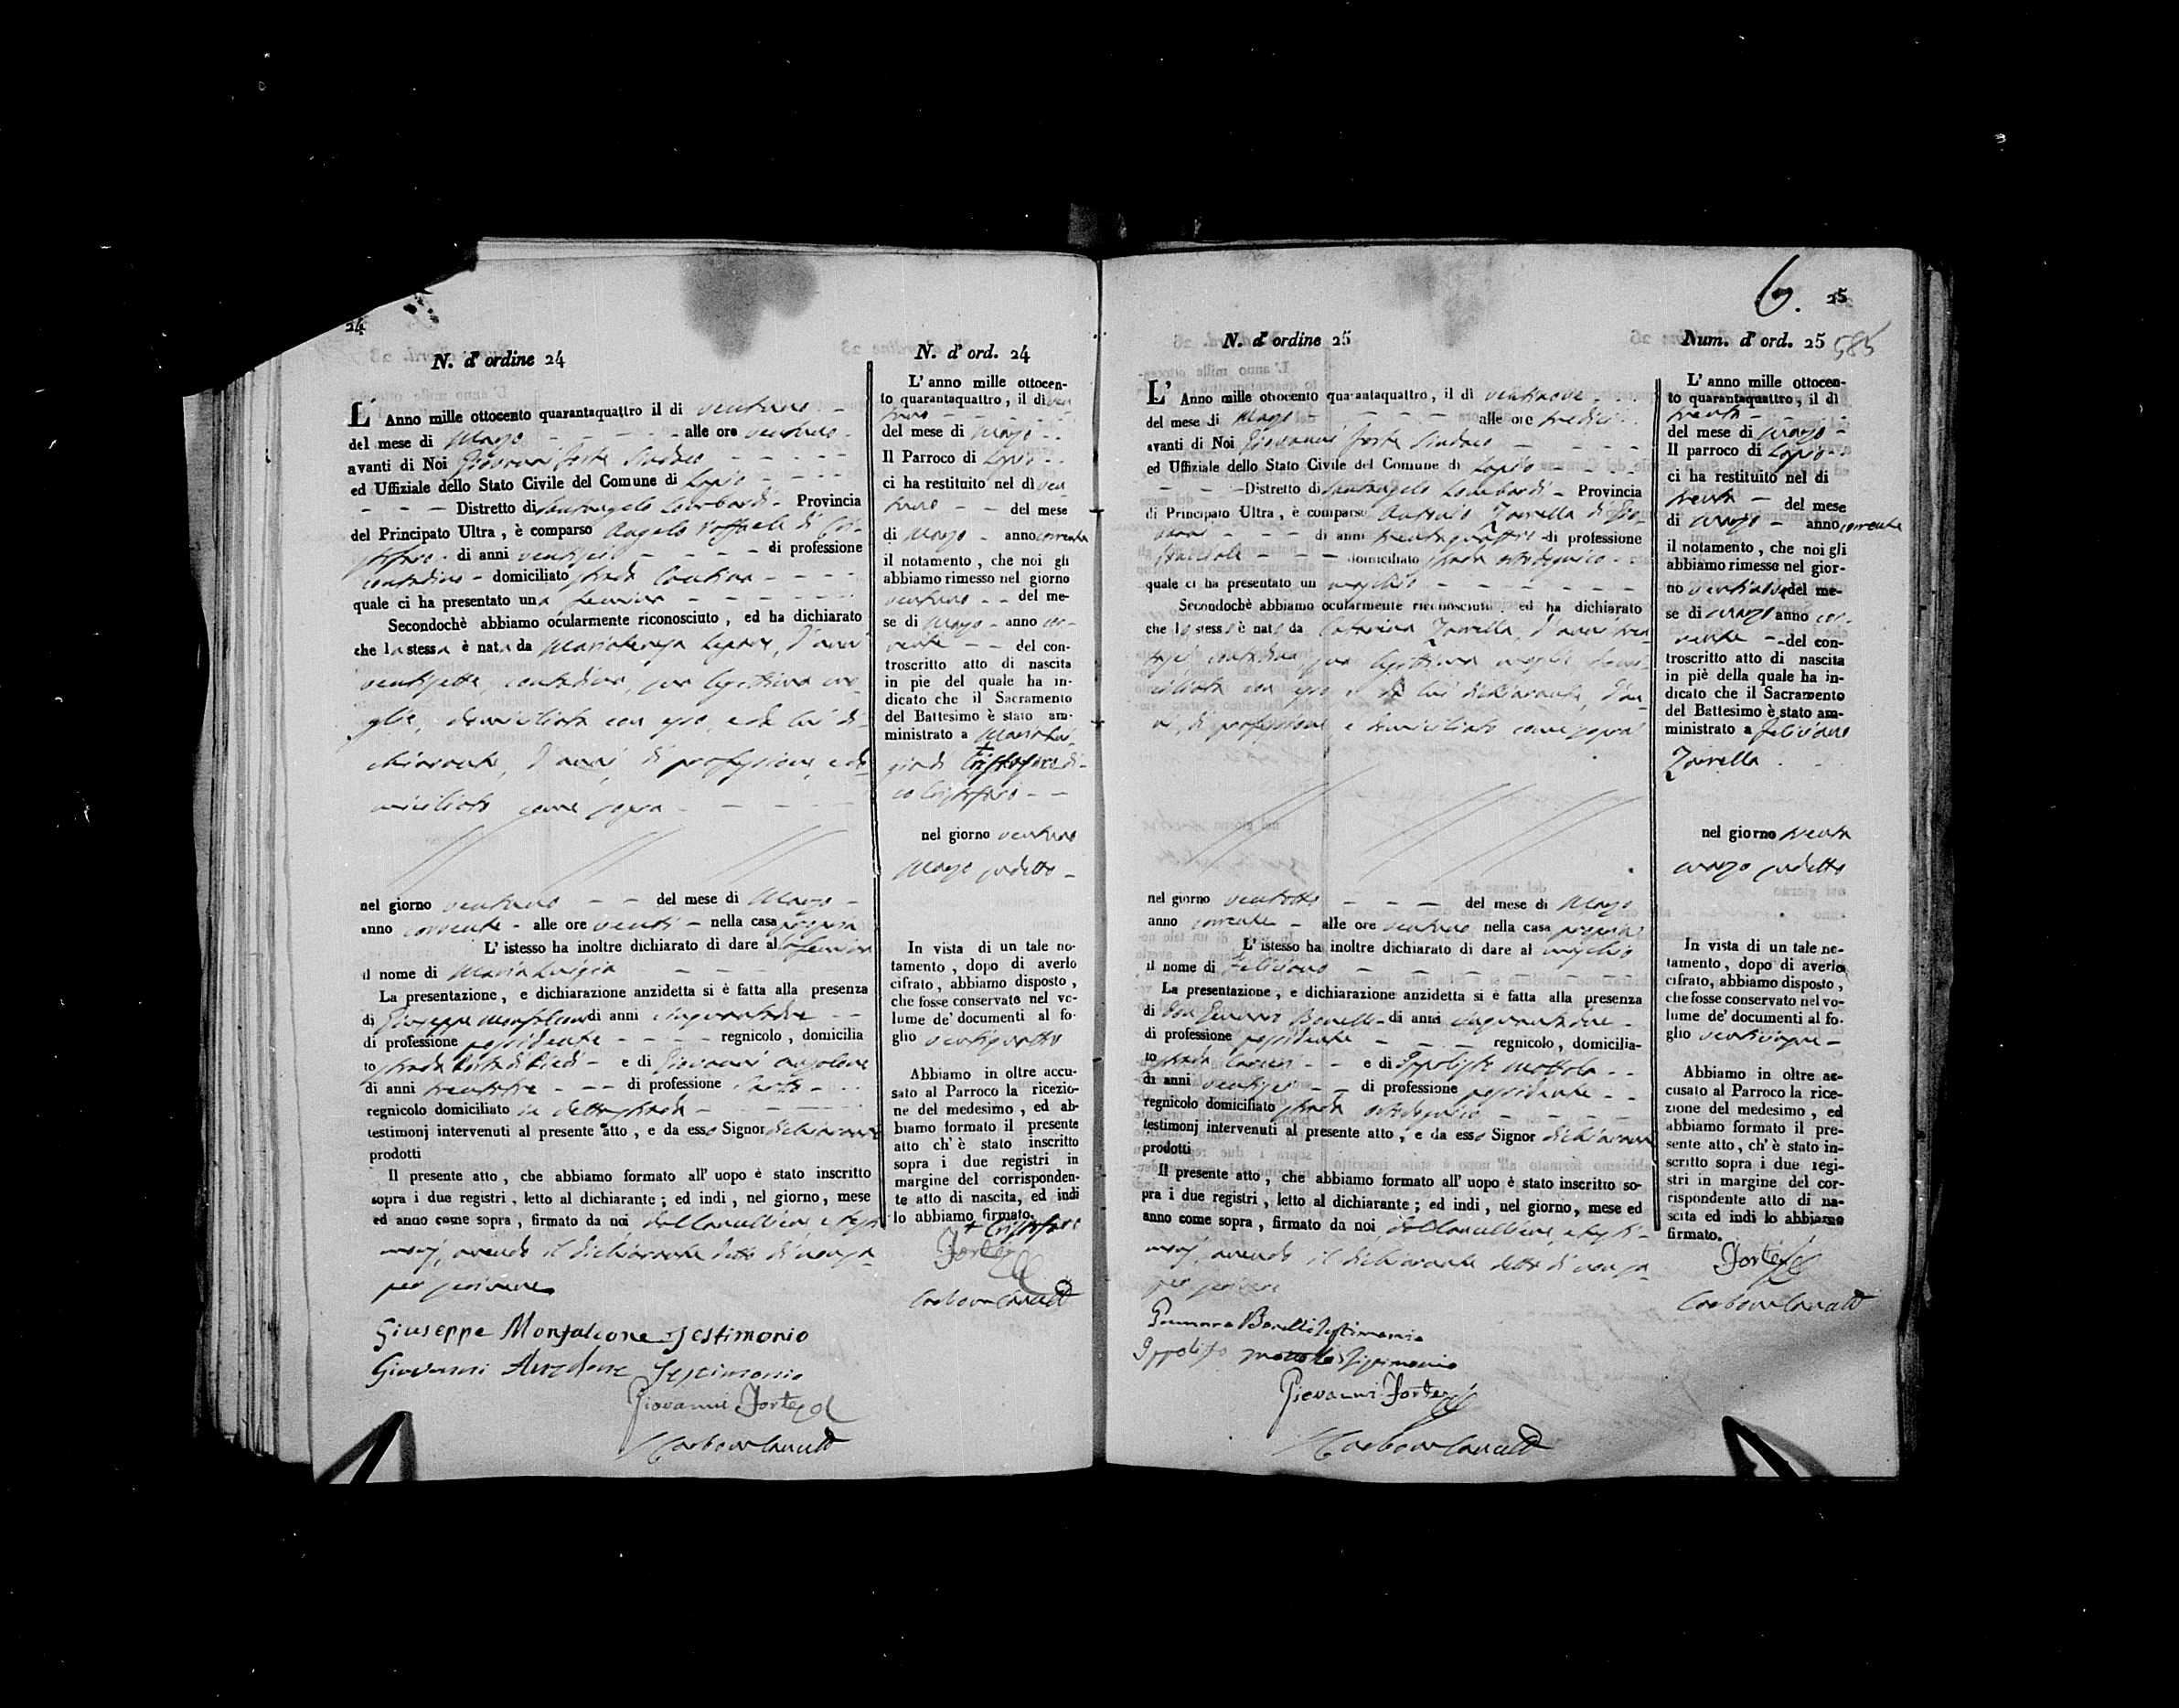 24
N. d' ordine 24
L' Anno mille ottocento quarantaquattro il di ventuno
del mese di Marzo alle ore ventuno
avanti di Noi Giovanni Forte Sindaco
ed Uffiziale dello Stato Civile del Comune di Lapio
Distretto di Santangelo Lombardi Provincia
del Principato Ultra, è comparso Angelo Raffaele di Cri-
stofaro di anni ventisei di professione
contadino domiciliato strada
quale ci ha presentato una femina
Secondochè abbiamo ocularmente riconosciuto, ed ha dichiarato
che la stessa è nata da Mariateresa d'anni
ventisette, contadina, sua legittima mo-
glie, domiciliata con esso, e da lui di-
chiarante, d'anni, di professione, e do-
miciliato come sopra
nel giorno ventuno del mese di Marzo
anno corrente alle ore venti nella casa propria
L' istesso ha inoltre dichiarato di dare alla femina
il nome di Maria Luigia
La presentazione, e dichiarazione anzidetta si è fatta alla presenza
di Giuseppe Monfalcone di anni cinquantadue
di professione possidente regnicolo, domicilia
to strada e di Giovanni Anzalone
di anni trentatre di professione Sarto
regnicolo domiciliato in detta strada
testimonj intervenuti al presente atto, e da esso Signor dichiarante
prodotti
Il presente atto, che abbiamo formato all' uopo è stato inscritto
sopra i due registri, letto al dichiarante; ed indi, nel giorno, mese
ed anno come sopra, firmato da noi dal Cancelliere e testi-
monj, avendo il dichiarante detto di non sa-
per scrivere
Giuseppe Monfalcone Testimonio
Giovanni Anzalone Testimonio
Giovanni Forte
N. d' ord. 24
L' anno mille ottocen-
to quarantaquattro, il dì ven
tuno
del mese di Marzo
Il Parroco di Lapio
ci ha restituito nel dì ven
tuno del mese
di Marzo anno corrente
il notamento, che noi gli
abbiamo rimesso nel giorno
ventuno del me-
se di Marzo anno cor-
rente del con-
troscritto atto di nascita
in pie del quale ha in-
dicato che il Sacramento
del Battesimo è stato am-
ministrato a Maria Lui-
gia di Cristofaro di-
co Cristofaro
nel giorno ventuno
Marzo sudetto
In vista di un tale no-
tamento, dopo di averlo
cifrato, abbiamo disposto,
che fosse conservato nel vo-
lume de' documenti al fo-
glio ventiquattro
Abbiamo in oltre accu-
sato al Parroco la ricezio-
ne del medesimo, ed ab-
biamo formato il presente
atto ch' è stato inscritto
sopra i due registri in
margine del corrisponden-
te atto di nascita, ed indi
lo abbiamo firmato.
+ Cristofaro
Forte
6. 25
N. d' ordine 25
L' Anno mille ottocento quarantaquattro, il di ventinove
del mese di Marzo alle ore tredici
avanti di Noi Giovanni Forte Sindaco
ed Uffiziale dello Stato Civile del Comune di Lapio
Distretto di Santangelo Lombardi Provincia
di Principato Ultra, è comparso Antonio Zarrella di Gio-
vanni di anni trentaquattro di professione
bracciale domiciliato strada
quale ci ha presentato un maschio
Secondochè abbiamo ocularmente riconosciuto, ed ha dichiarato
che lo stesso è nato da Caterina Zarrella, d'anni tren
tasei, contadina, sua legittima moglie domi-
ciliata con esso e da lui dichiarante, d'an-
ni, di professione e domiciliato come sopra
nel giorno ventotto del mese di Marzo
anno corrente alle ore ventuno nella casa propria
L' istesso ha inoltre dichiarato di dare al maschio
il nome di Feliciano
La presentazione, e dichiarazione anzidetta si è fatta alla presenza
di Don Gennaro Borelli di anni cinquantadue
di professione possidente regnicolo, domicilia-
to strada e di Ippolisto Mottola
di anni ventisei di professione possidente
regnicolo domiciliato strada
testimonj intervenuti al presente atto, e da esso Signor dichiarante
prodotti
Il presente atto, che abbiamo formato all' uopo è stato inscritto so-
pra i due registri, letto al dichiarante; ed indi, nel giorno, mese ed
anno come sopra, firmato da noi dal Cancelliere, e testi-
monj, avendo il dichiarante detto di non sa-
per scrivere
Gennaro Borelli Testimonio
Ippolisto Mottola Testimonio
Giovanni Forte
Num. d' ord. 25 585
L' anno mille ottocen-
to quarantaquattro, il dì
trenta
del mese di Marzo
Il parroco di Lapio
ci ha restituito nel di
trenta del mese
di Marzo anno corrente
il notamento, che noi gli
abbiamo rimesso nel gior-
no ventinove del me-
se di Marzo anno cor-
rente del con-
troscritto atto di nascita
in piè della quale ha in-
dicato che il Sacramento
del Battesimo è stato am-
ministrato a Feliciano
Zarrella
nel giorno trenta
Marzo sudetto
In vista di un tale no-
tamento, dopo di averlo
cifrato, abbiamo disposto,
che fosse conservato nel vo-
lume de' documenti al fo-
glio venticinque
Abbiamo in oltre ac-
cusato al Parroco la rice-
zione del medesimo, ed
abbiamo formato il pre-
sente atto, ch' è stato in-
scritto sopra i due regi-
stri in margine del cor-
rispondente atto di na-
scita ed indi lo abbiamo
firmato.
Forte